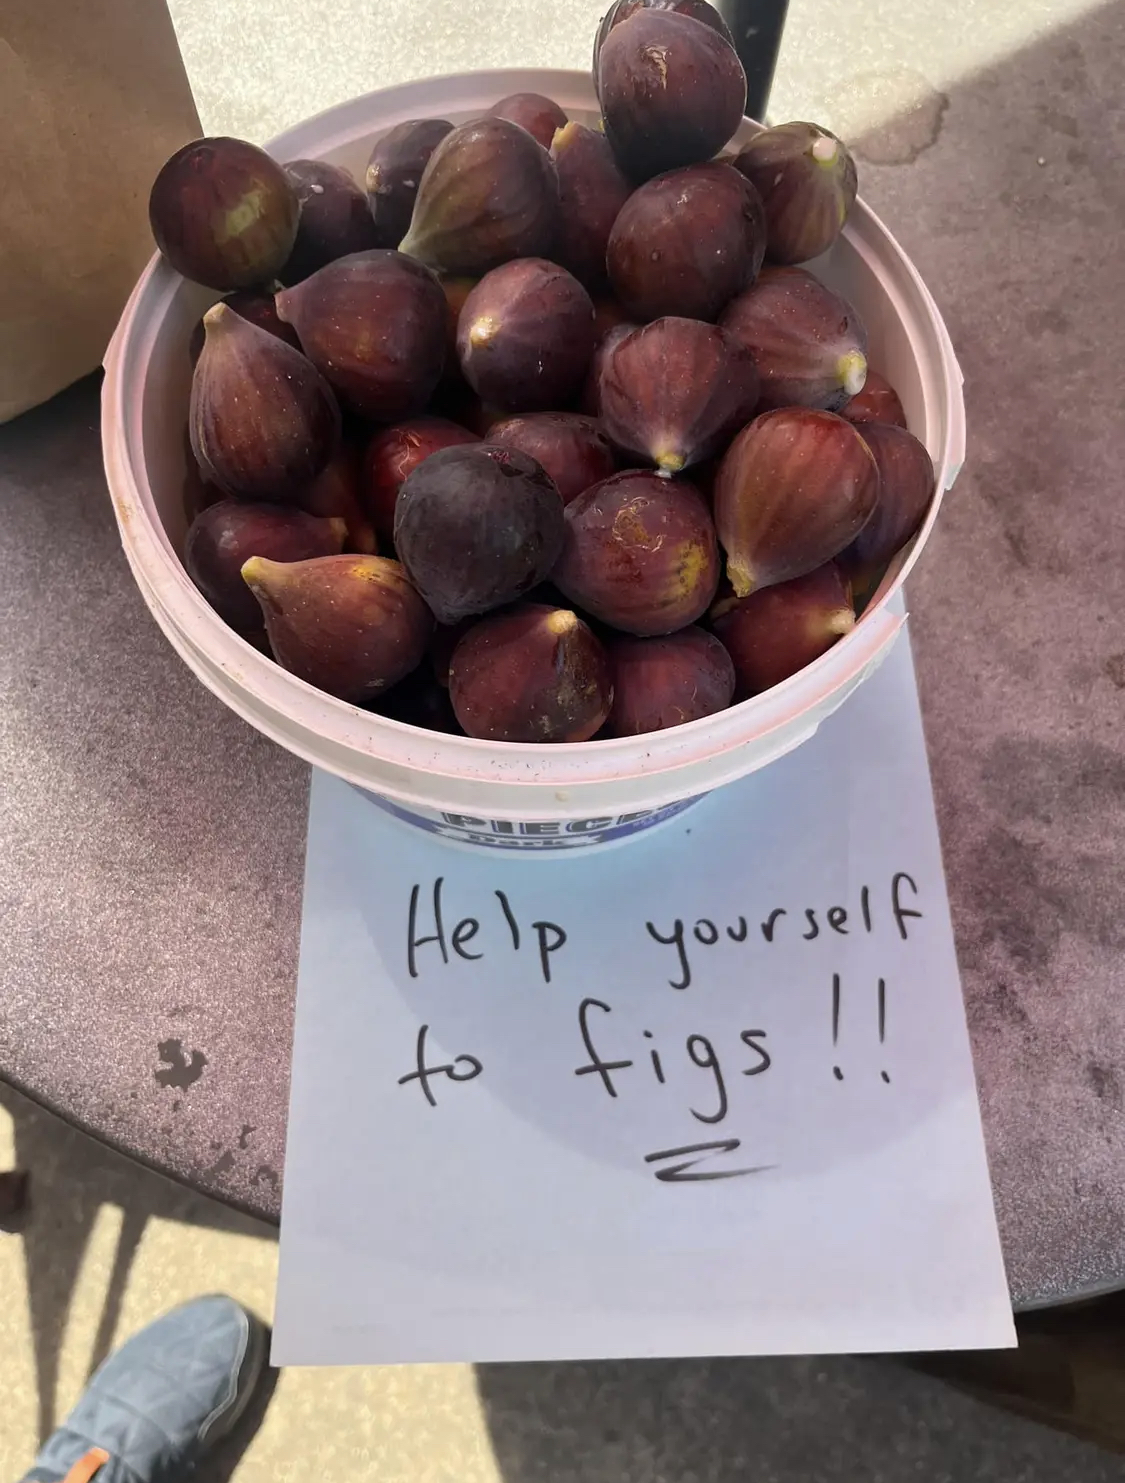 PIECES
Dark
Help yourself
to figs!!